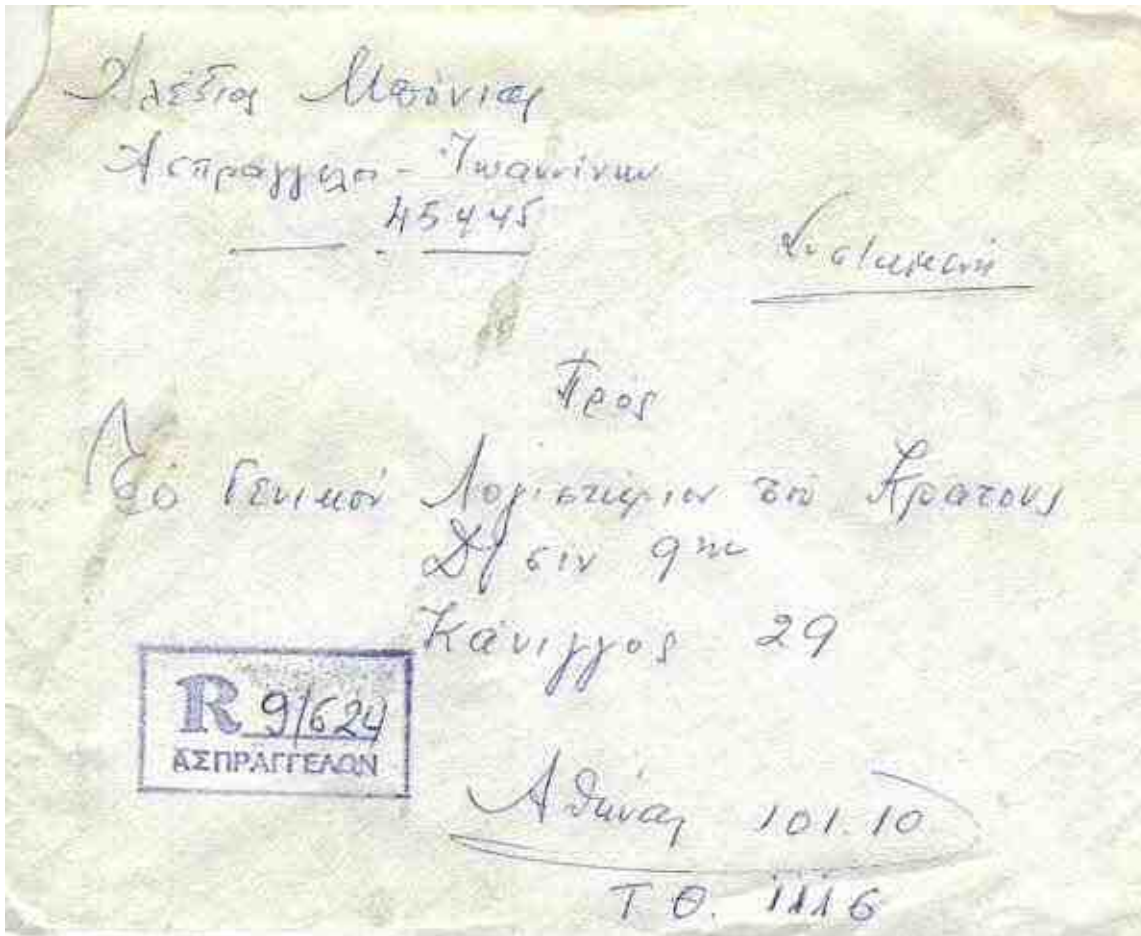 Αλέξιος Μπόνιας
Ασπράγγελοι - Ἰωαννίνων
45445
Συστημένη
Πρός
Τό Γενικόν Λογιστήριον τοῦ Κράτους
Δ/σιν 9ην
Κάνιγγος 29
R 91624
ΑΣΠΡΑΓΓΕΛΩΝ
Αθήνας 101.10
Τ.Θ. 1116